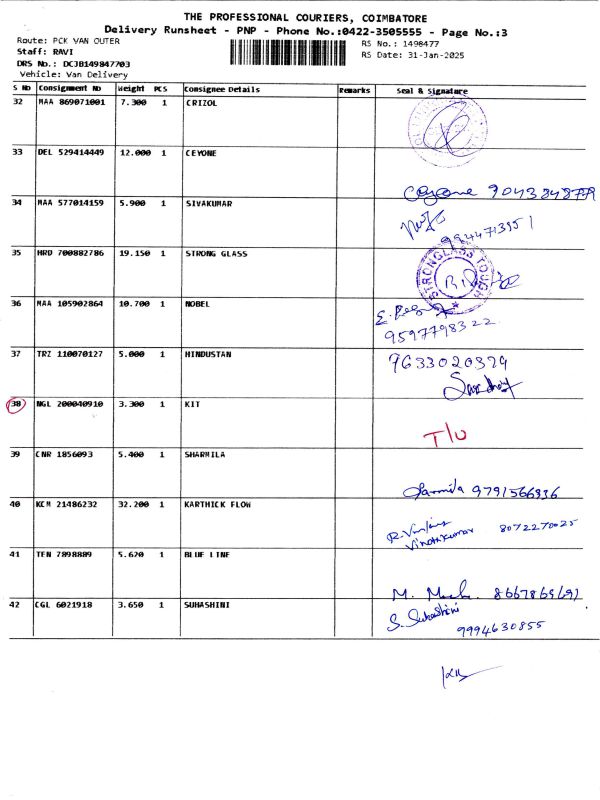 THE PROFESSIONAL COURIERS, COIMBATORE
Delivery Runsheet - PNP - Phone No.:0422-3505555 - Page No.:3
Route: PCK VAN OUTER
RS No.: 1498477
Staff: RAVI
RS Date: 31-Jan-2025
DRS No.: DCJB149847703
Vehicle: Van Delivery
S No Consignment No Weight PCS Consignee Details Remarks Seal & Signature
32 MAA 869071001 7.300 1 CRIZOL
33 DEL 529414449 12.000 1 CEYONE
Ceyone 9043848779
34 MAA 577014159 5.900 1 SIVAKUMAR
9944713951
35 HRD 700882786 19.150 1 STRONG GLASS
STRONGLASS TOUGH
36 MAA 105902864 10.700 1 NOBEL
9597798322
37 TRZ 110070127 5.000 1 HINDUSTAN
9633020329
38 NGL 200040910 3.300 1 KIT
T/U
39 CNR 1856093 5.400 1 SHARMILA
Sarmila 9791566936
40 KCM 21486232 32.200 1 KARTHICK FLOW
Vinothkumar 8072270025
41 TEN 7898889 5.620 1 BLUE LINE
M. 8667865692
42 CGL 6021918 3.650 1 SUHASHINI
S. Suhashini
9994630855